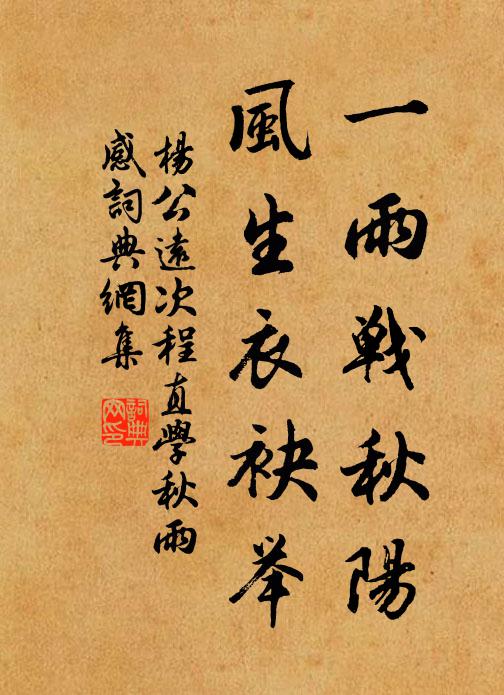 一雨戰秋陽
風生衣袂举
楊公遠次程直學秋雨
感詞典網集
詞典網印